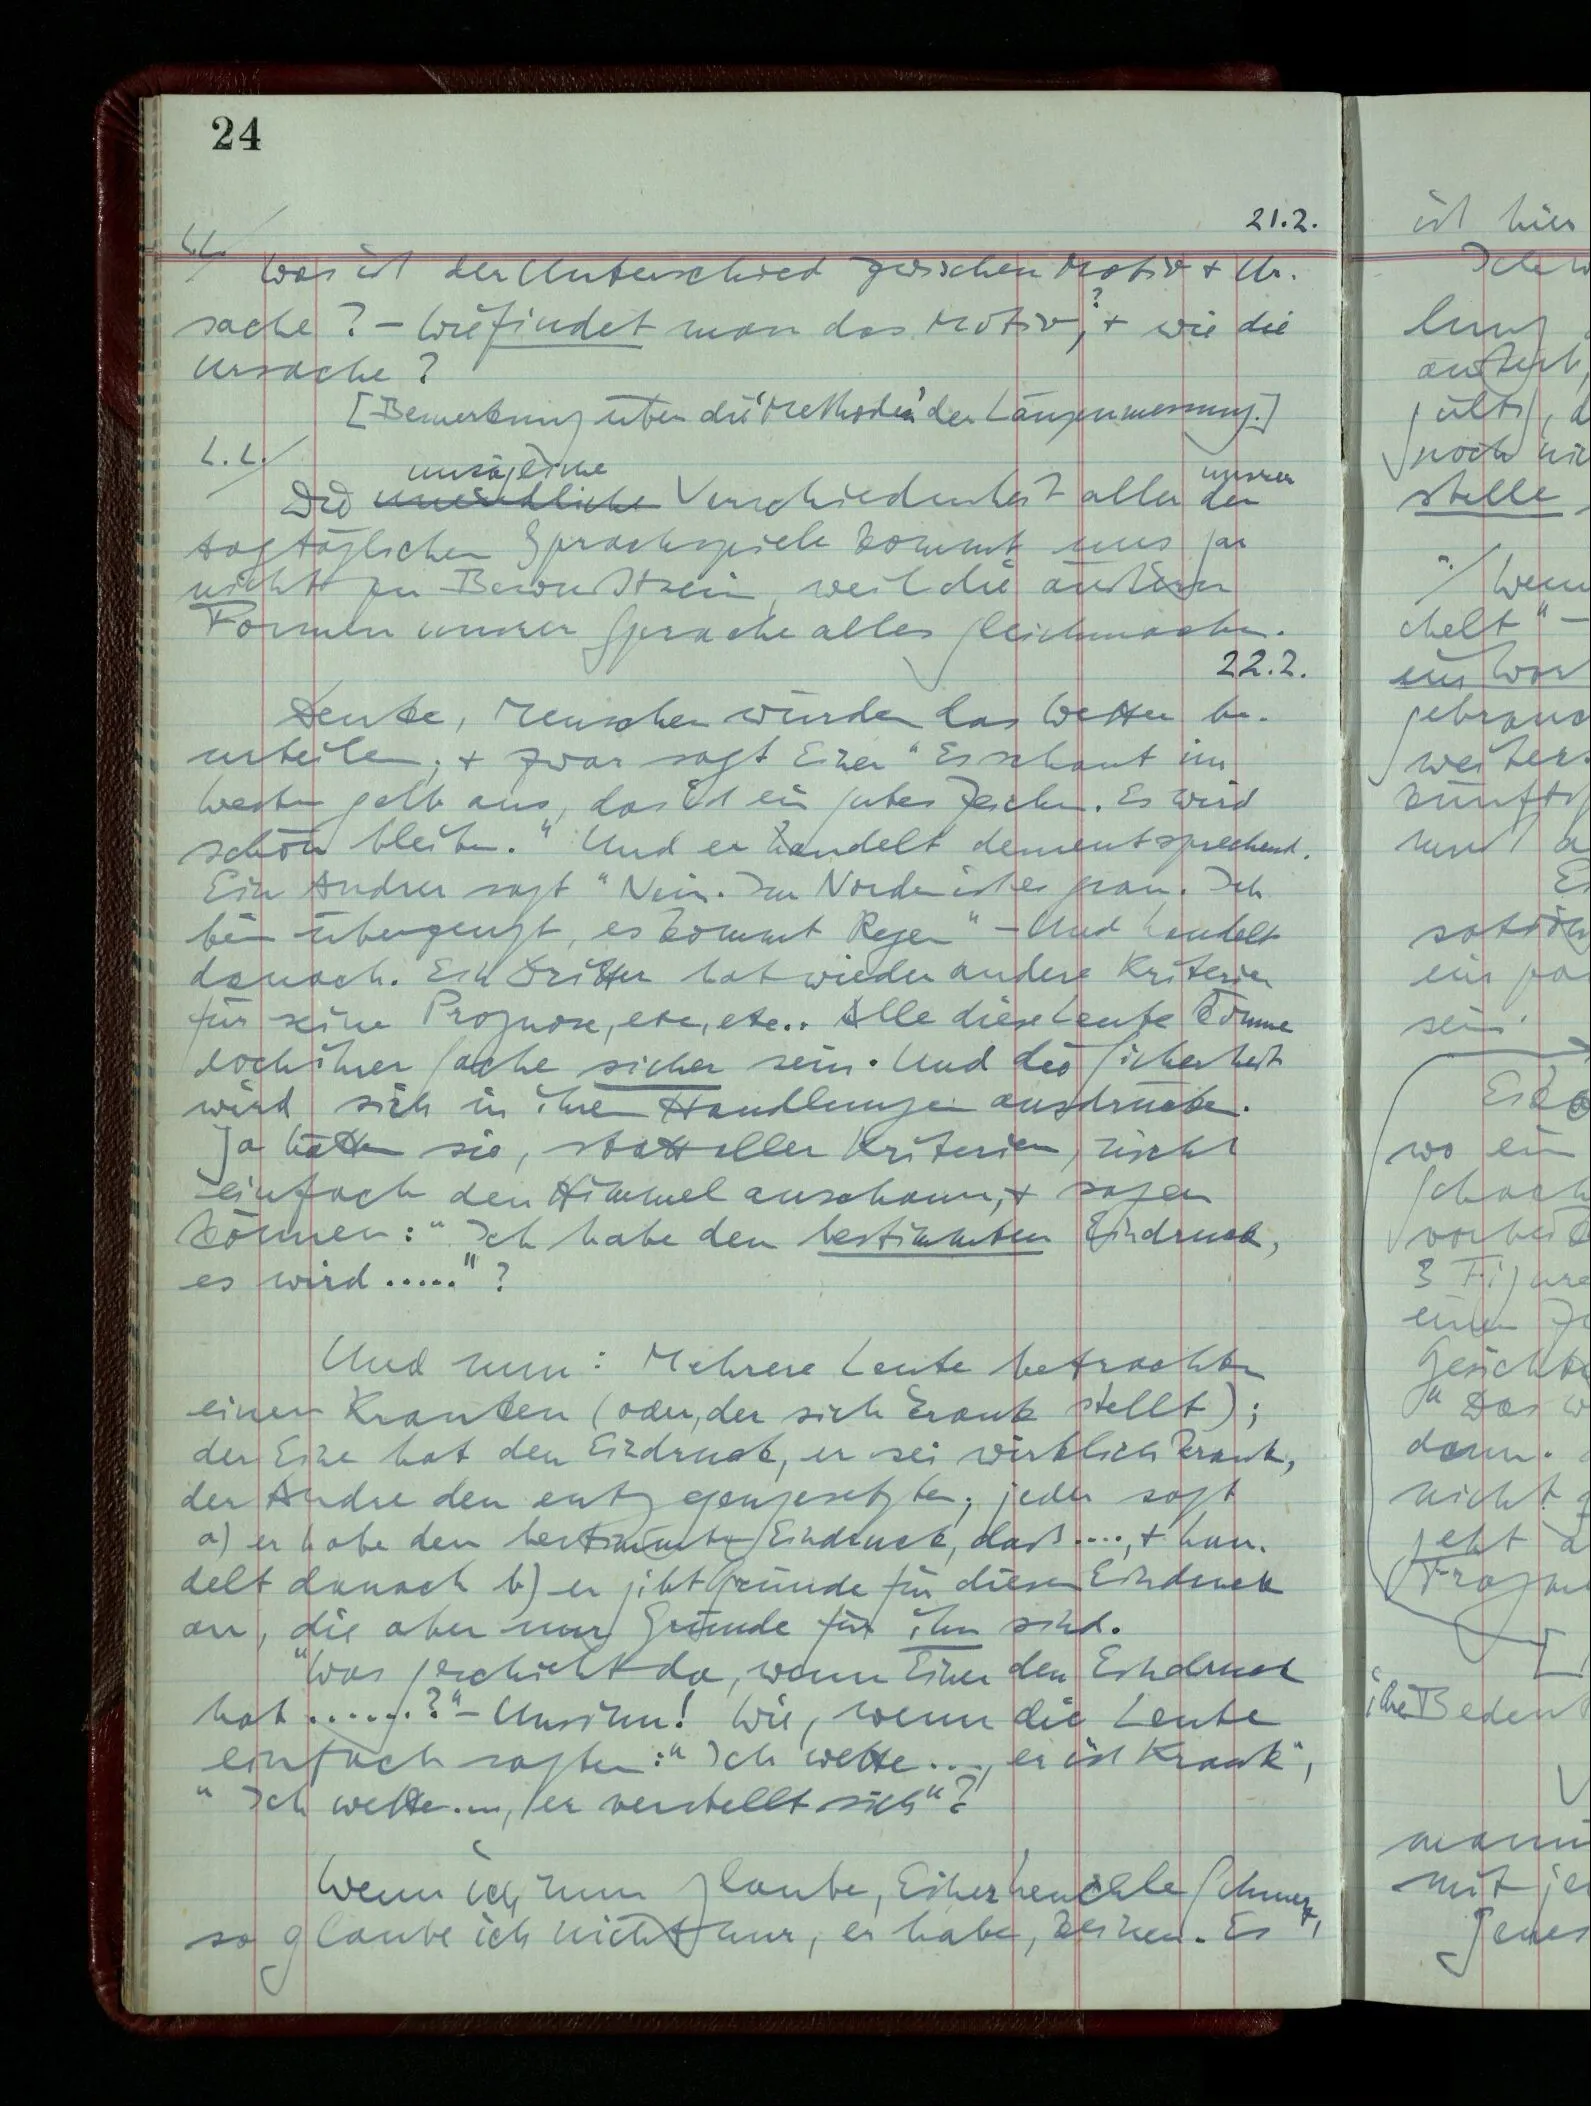 24
21.2.
L.L.
Was ist der Unterschied zwischen Motiv & Ur-
sache? – Wie findet man das Motiv?, & wie die
Ursache?
[Bemerkung über die 'Methoden' der Längenmessung.]
L.L.
unsägliche unsrer
Die unendliche Verschiedenheit aller der
tagtäglichen Sprachspiele kommt uns gar
nicht zu Bewußtsein, weil die äußern
Formen unsrer Sprache alles gleichmachen.
22.2.
Denke, Menschen würden das Wetter be-
urteilen; & zwar sagt Einer “Es schaut im
Westen gelb aus, das ist ein gutes Zeichen. Es wird
schön bleiben.” Und er handelt dementsprechend.
Ein Andrer sagt “Nein. Im Norden ist es grau. Ich
bin überzeugt, es kommt Regen” – Und handelt
danach. Ein Dritter hat wieder andere Kriterien
für seine Prognose, etc., etc.. Alle diese Leute können
doch ihrer Sache sicher sein. Und die Sicherheit
wird sich in ihren Handlungen ausdrücken.
Ja hätten sie, statt aller Kriterien, nicht
einfach den Himmel anschauen, & sagen
können: “Ich habe den bestimmten Eindruck,
es wird .....”?
Und nun: Mehrere Leute betrachten
einen Kranken (oder, der sich krank stellt);
der Eine hat den Eindruck, er sei wirklich krank,
der Andre den entgegengesetzten; jeder sagt
a) er habe den bestimmten Eindruck, daß ...., & han-
delt danach b) er gibt Gründe für diesen Eindruck
an, die aber nur Gründe für ihn sind.
“Was geschieht da, wenn Einer den Eindruck
hat ......?” – Unsinn! Wie, wenn die Leute
einfach sagten: “Ich wette ..., er ist krank”,
“Ich wette ..., er verstellt sich”?
Wenn ich nun glaube, Einer heuchle Schmerz,
so glaube ich nicht nur, er habe, keinen. Es
ist hier
stelle
wo ein
3 Figure
“Das w
nicht
ihre Bedeut
mit je